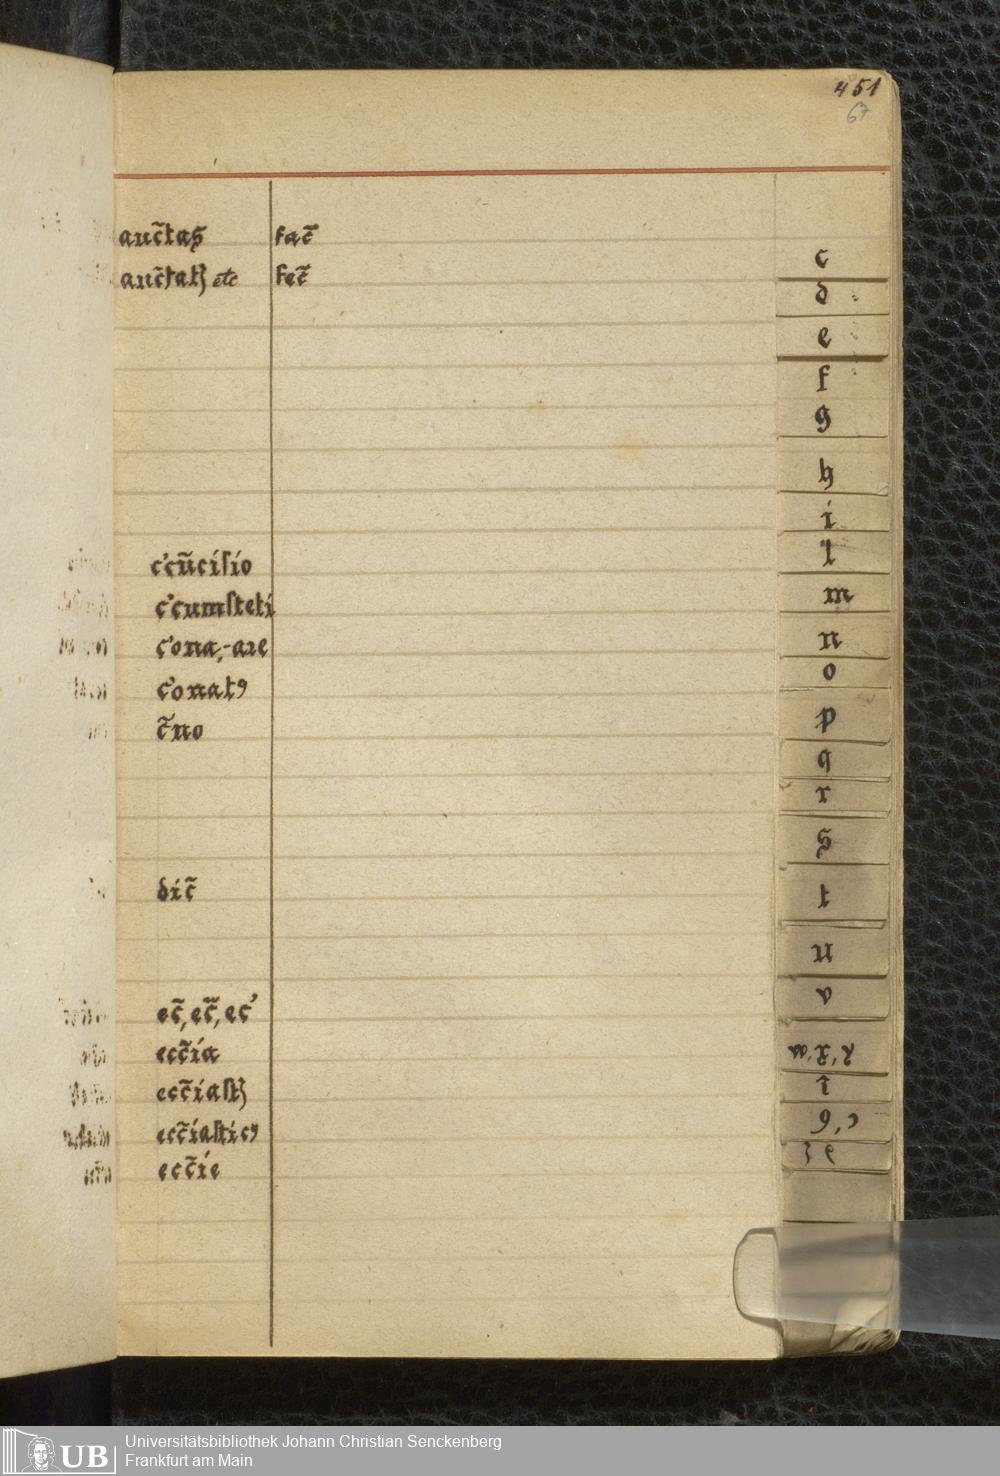 451
67
auc̃tas fac̃
auc̃tatꝫ etc fec̃
c
d
e
f
g
h
i
l
m
n
o
p
q
r
s
t
u
v
c'cũcisio
c'cumſteti
c'ona,-are
c'onatꝰ
c̃no
dic̃
ec̃, ec̃, ec'
ecc̃ia
ecc̃iaſtꝫ
ecc̃iaſticꝰ
ecc̃ie
UB
Universitätsbibliothek Johann Christian Senckenberg
Frankfurt am Main